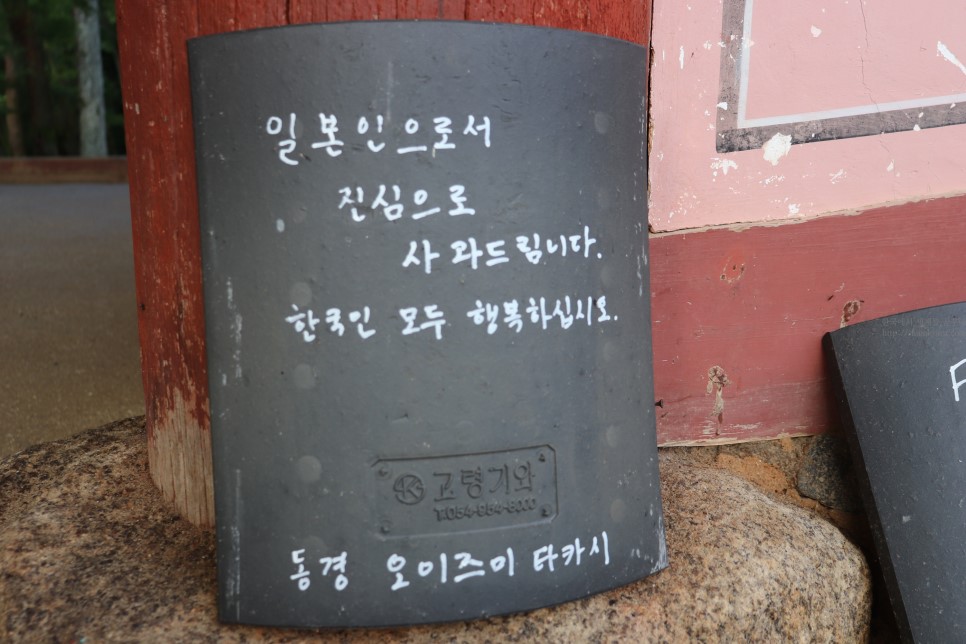 일본인으로서
진심으로
사와드립니다.
한국인 모두 행복하십시오.
고령기와
T.054-954-8000
동경 오이즈미 타카시
F